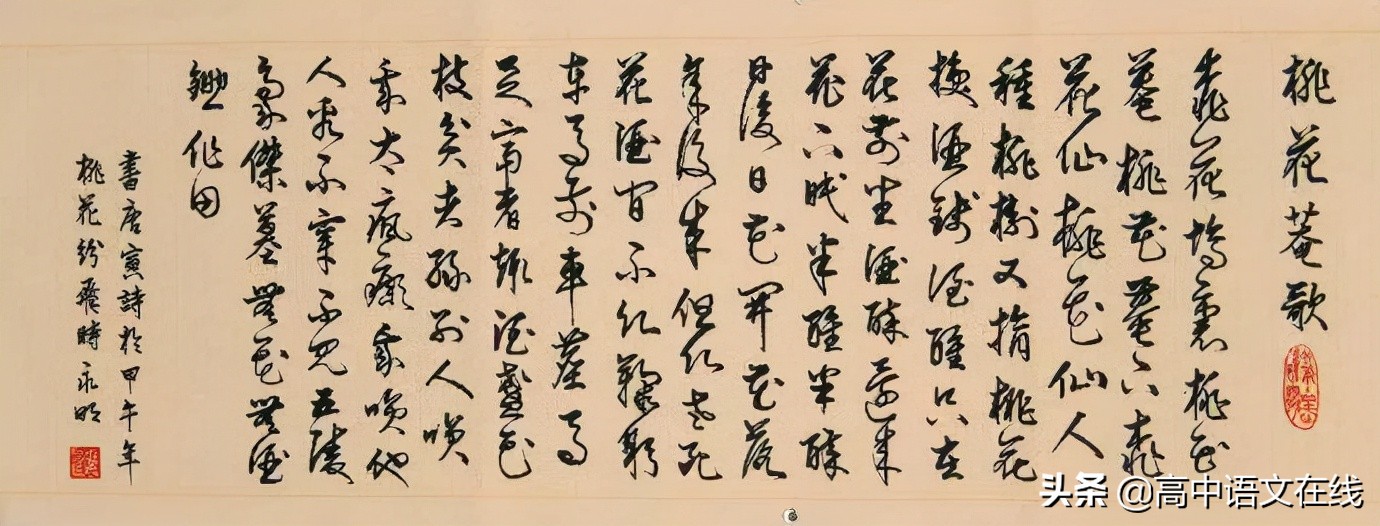 桃花菴歌
桃花塢裏桃花
菴桃花菴下桃
花仙桃花仙人
種桃樹又摘桃花
換酒錢酒醒只在
花前坐酒醉還來
花下眠半醒半醉
日復日花開花落
年復年但願老死
花酒間不願鞠躬
車馬前車塵馬
足富者趣酒盞花
枝貧者緣別人笑
我太瘋癲我笑他
人看不穿不見五陵
豪傑墓無花無酒
鋤作田
書唐寅詩於甲午年
桃花紛飛時永明
头条 @高中语文在线